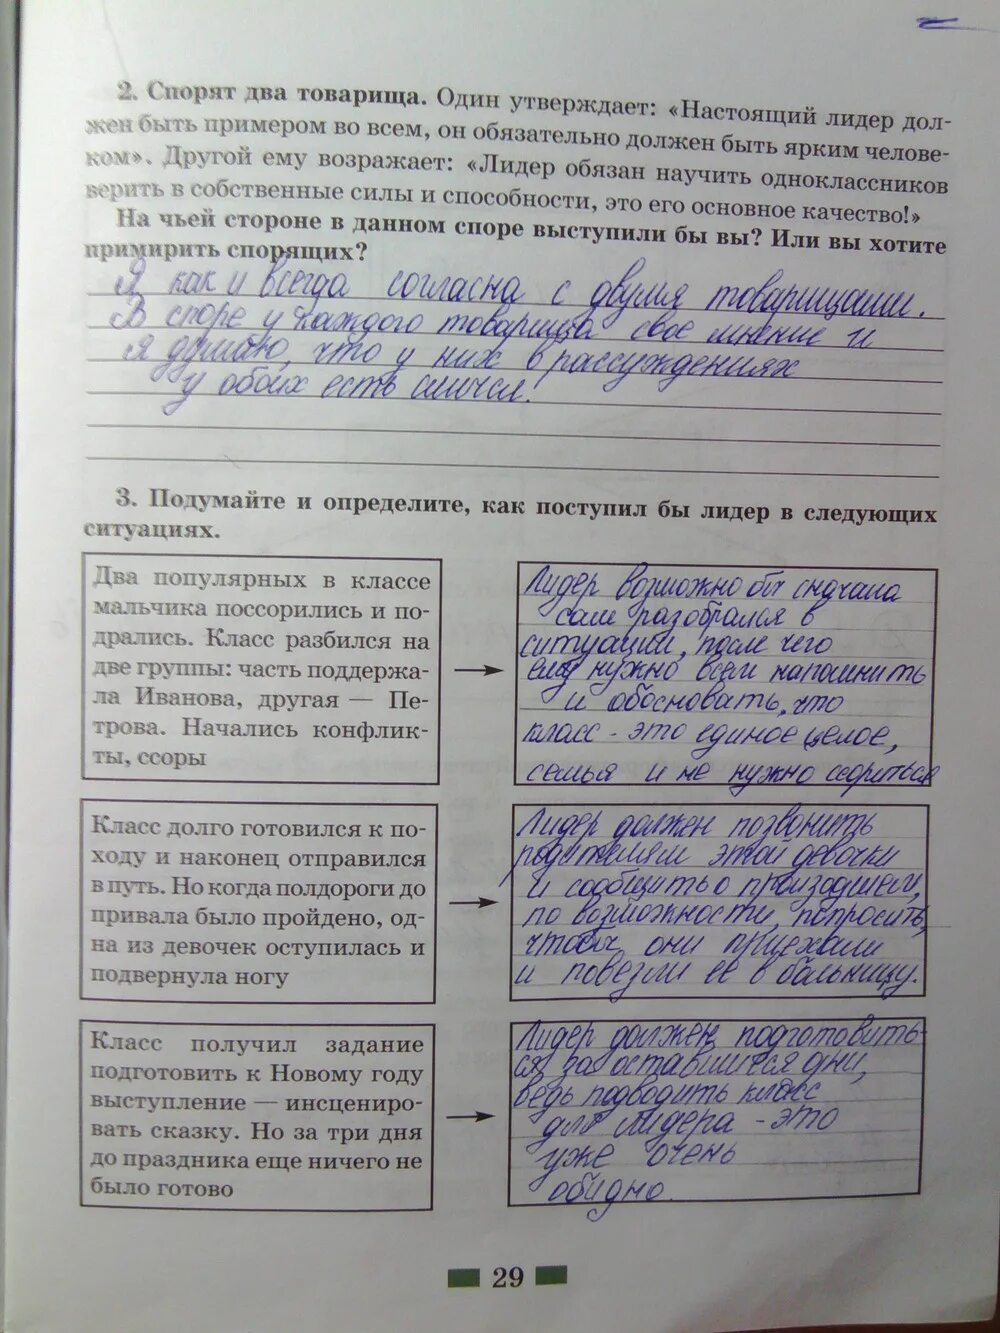 2. Спорят два товарища. Один утверждает: «Настоящий лидер дол-
жен быть примером во всем, он обязательно должен быть ярким челове-
ком». Другой ему возражает: «Лидер обязан научить одноклассников
верить в собственные силы и способности, это его основное качество!»
На чьей стороне в данном споре выступили бы вы? Или вы хотите
примирить спорящих?
Я как и всегда согласна с двумя товарищами.
В споре у каждого товарища свое мнение и
я думаю, что у них в рассуждениях
у обоих есть смысл.
3. Подумайте и определите, как поступил бы лидер в следующих
ситуациях.
Два популярных в классе
мальчика поссорились и по-
дрались. Класс разбился на
две группы: часть поддержа-
ла Иванова, другая — Пе-
трова. Начались конфлик-
ты, ссоры
Лидер возможно бы сначала
сам разобрался в
ситуации, после чего
ему нужно всем напомнить
и обосновать, что
класс - это единое целое,
семья и не нужно ссориться
Класс долго готовился к по-
ходу и наконец отправился
в путь. Но когда полдороги до
привала было пройдено, од-
на из девочек оступилась и
подвернула ногу
Лидер должен позвонить
родителям этой девочки
и сообщить о произошедшем,
по возможности, попросить,
чтобы они приехали
и повезли её в больницу.
Класс получил задание
подготовить к Новому году
выступление — инсцениро-
вать сказку. Но за три дня
до праздника еще ничего не
было готово
Лидер должен подготовить-
ся за оставшиеся дни,
ведь подводить класс
для лидера - это
уже очень
обидно.
29